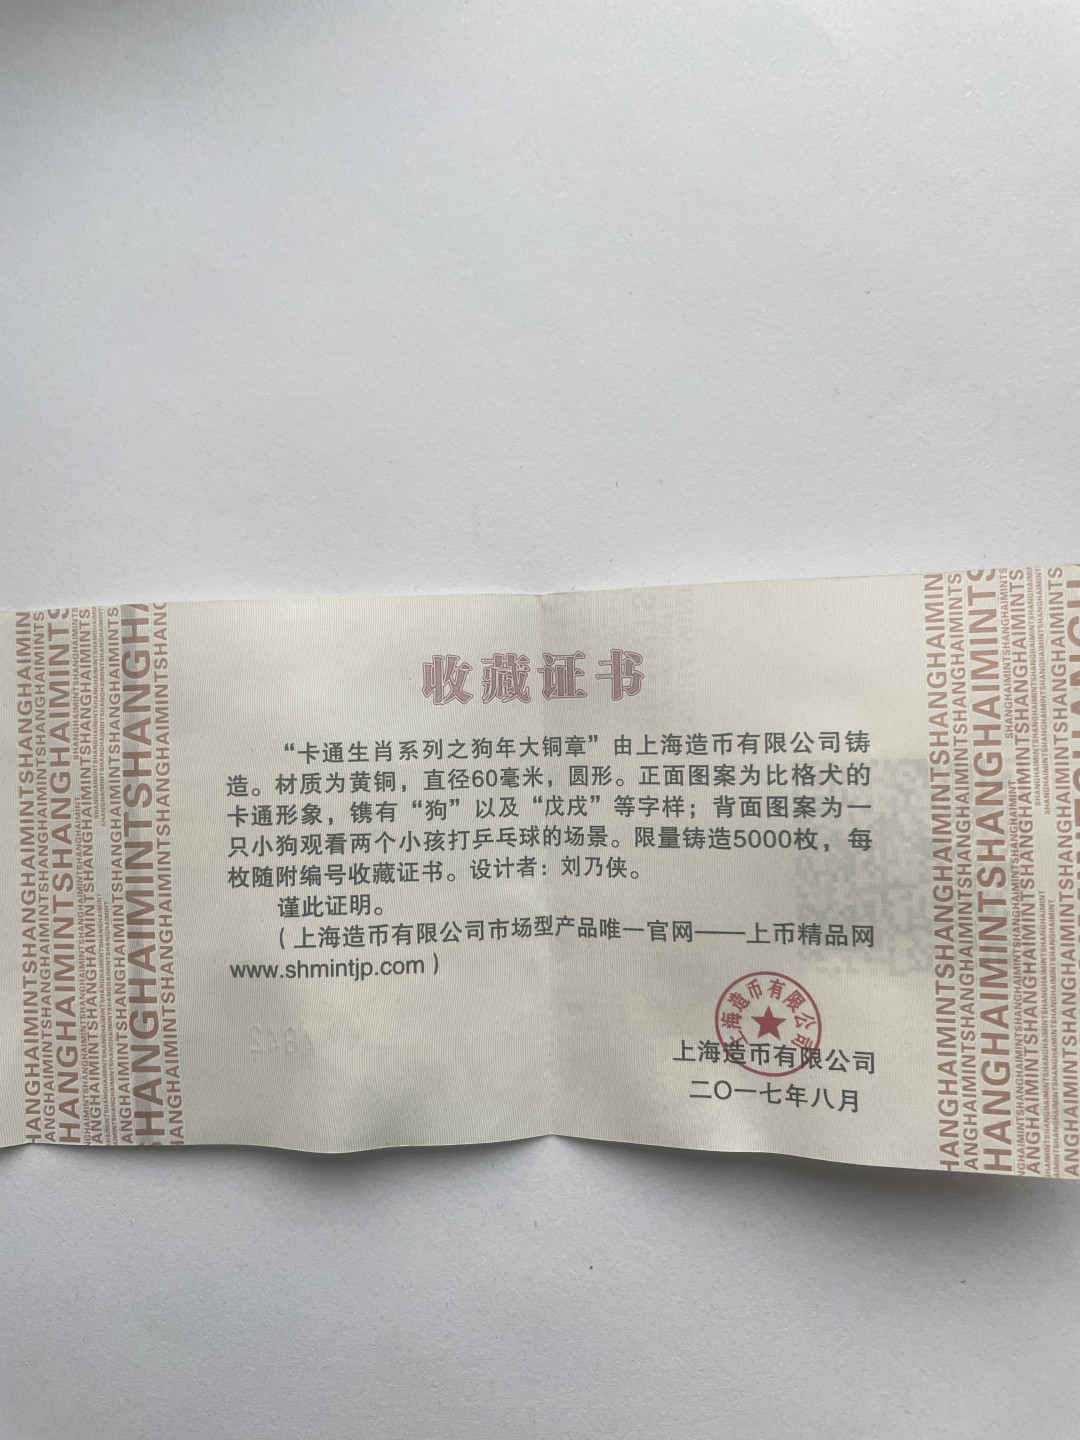 收藏证书
“卡通生肖系列之狗年大铜章”由上海造币有限公司铸
造。材质为黄铜，直径60毫米，圆形。正面图案为比格犬的
卡通形象，镌有“狗”以及“戊戌”等字样；背面图案为一
只小狗观看两个小孩打乒乓球的场景。限量铸造5000枚，每
枚随附编号收藏证书。设计者：刘乃侠。
谨此证明。
（上海造币有限公司市场型产品唯一官网——上币精品网
www.shmintjp.com）
上海造币有限公司
上海造币有限公司
二〇一七年八月
SHANGHAIMINTSHANGHAIMINTSHANGHAIMINT